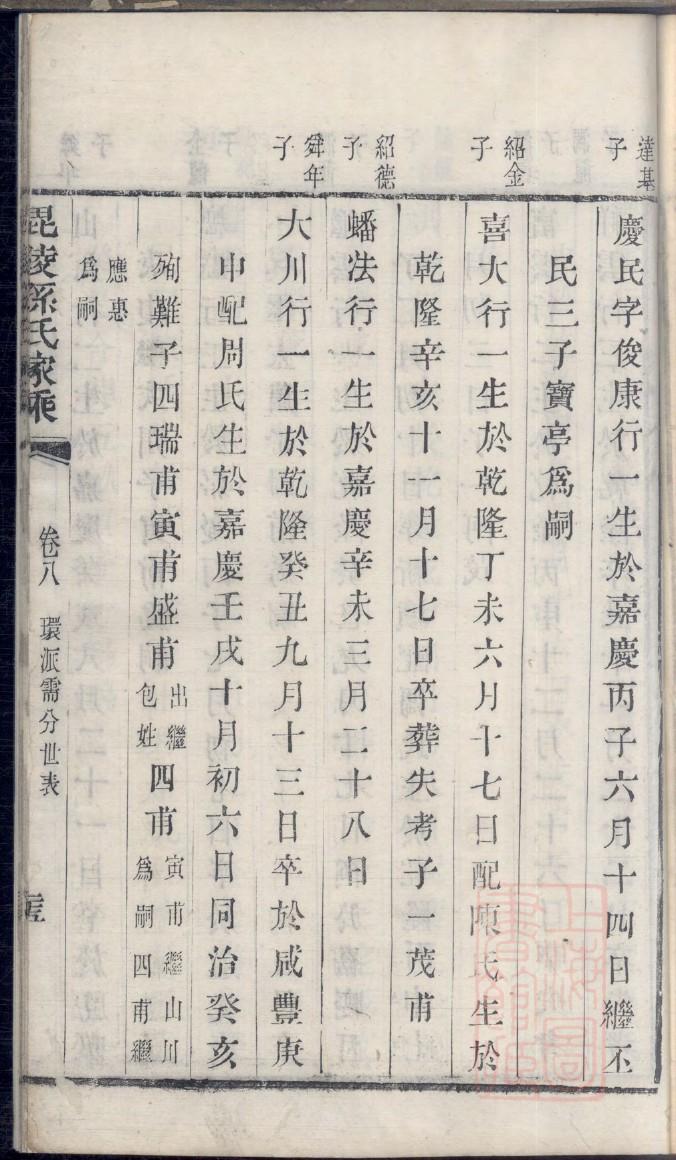 達基子
慶民字俊康行一生於嘉慶丙子六月十四日繼丕
民三子寶亭爲嗣
紹金子
喜大行一生於乾隆丁未六月十七日配陳氏生於
乾隆辛亥十一月十七日卒葬失考子一茂甫
紹德子
蟠法行一生於嘉慶辛未三月二十八日
舜年子
大川行一生於乾隆癸丑九月十三日卒於咸豐庚
申配周氏生於嘉慶壬戌十月初六日同治癸亥
殉難子四瑞甫寅甫盛甫出繼包姓四甫寅甫繼山川爲嗣四甫繼
應惠爲嗣
毘陵孫氏家乘
卷八 環派需分世表